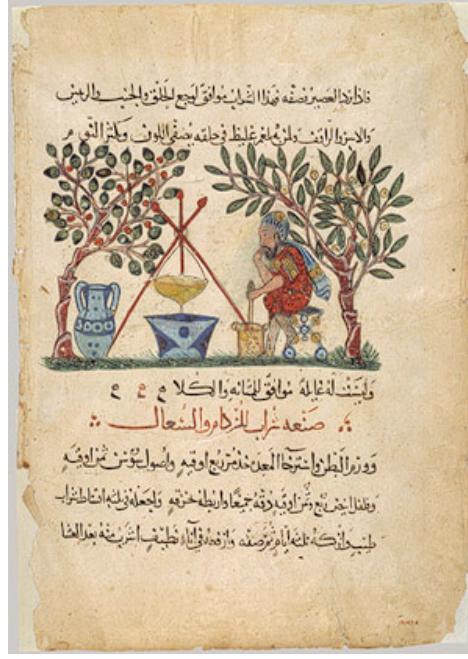 فاذا زد العصير نصفه فهذا الشراب موافق لوجع الحلق والجنب والريس
والاسر ولمن بلغم غليظ في حلقه يصفي اللون ويكثر النوم
له موافق للمثانه والكلا ح ح ح
صنعه شراب للزكام والسعال
وورم البطن واسترخا المعده خذ مر ربع اوقيه واصول سوسن ثمن اوقيه
وفلفل ابيض ربع وثمن اوقيه دقه جميعا واربطه خرقه واجعله في ثلثه اقساط شراب
طيب واتركه ثلثه ايام ثم صفه وارفعه في اناء نظيف اشرب منه بعد العشا